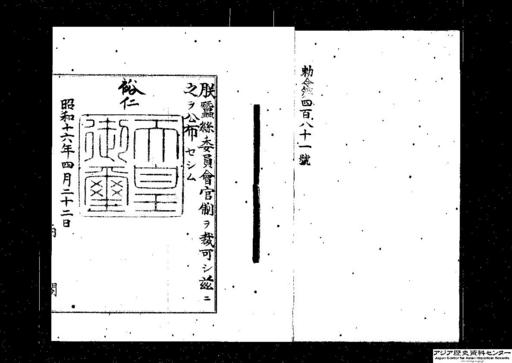 勅令第四百八十一號
朕蠶絲委員會官制ヲ裁可シ茲ニ
之ヲ公布セシム
裕仁
天皇御璽
昭和十六年四月二十二日
内閣
アジア歴史資料センター
Japan Center for Asian Historical Records